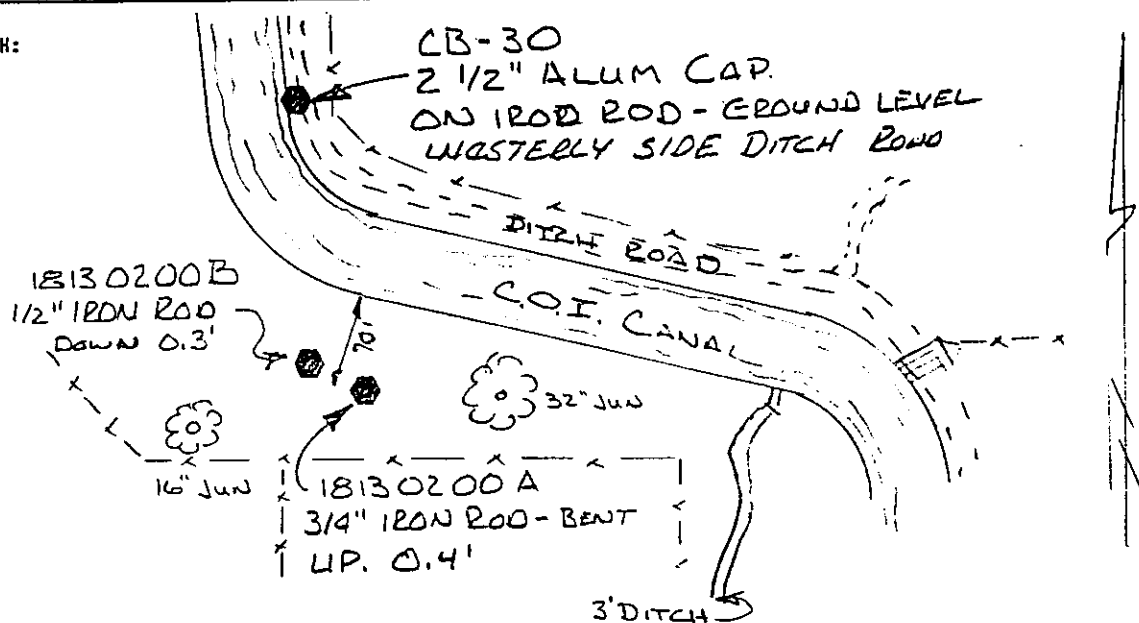 H:
CB-30
2 1/2" ALUM CAP.
ON IROD ROD - GROUND LEVEL
WESTERLY SIDE DITCH ROAD
DITCH ROAD
C.O.I. CANAL
18130200B
1/2" IRON ROD
DOWN 0.3'
70'
32" JUN
16" JUN
18130200A
3/4" IRON ROD - BENT
UP. 0.4'
3' DITCH